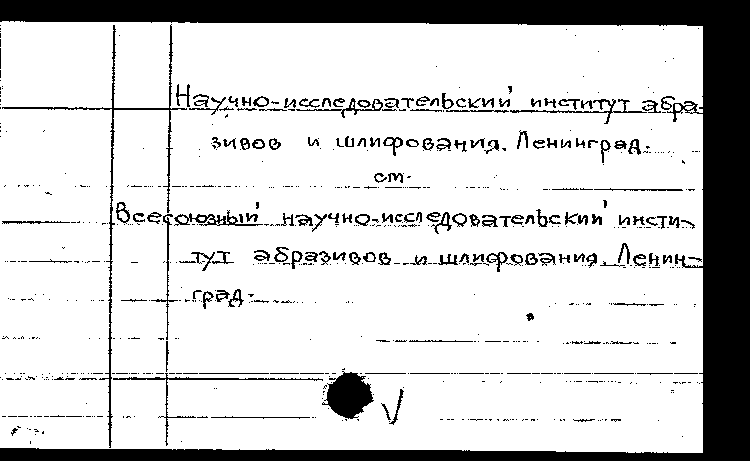 Научно-исследовательский институт абра-
зивов и шлифования. Ленинград.
см.
Всесоюзный научно-исследовательский инсти-
тут абразивов и шлифования. Ленин-
град.